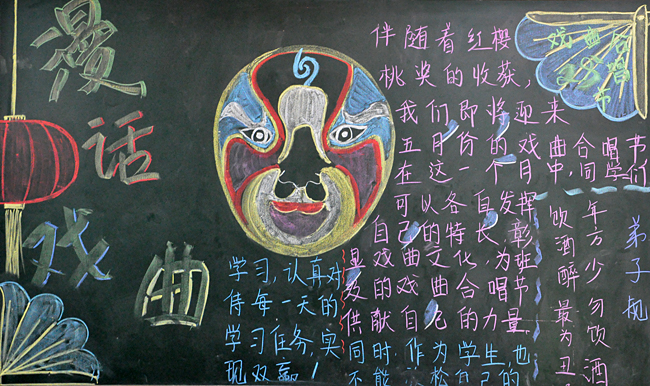 漫
话
戏
曲
戏曲合唱
节
伴随着红樱
桃奖的收获，
我们即将迎来
五月份的戏曲合唱节
在这一个月中，同学们
可以各自发挥
自己的特长，彰
显戏曲文化，为班
及的戏曲合唱节
供献自己的力量
同时，作为学生，也
不能 松自己的
学习，认真对
待每一天的
学习任务，实
现双赢！
弟子规
年方少 勿饮酒
饮酒醉 最为丑